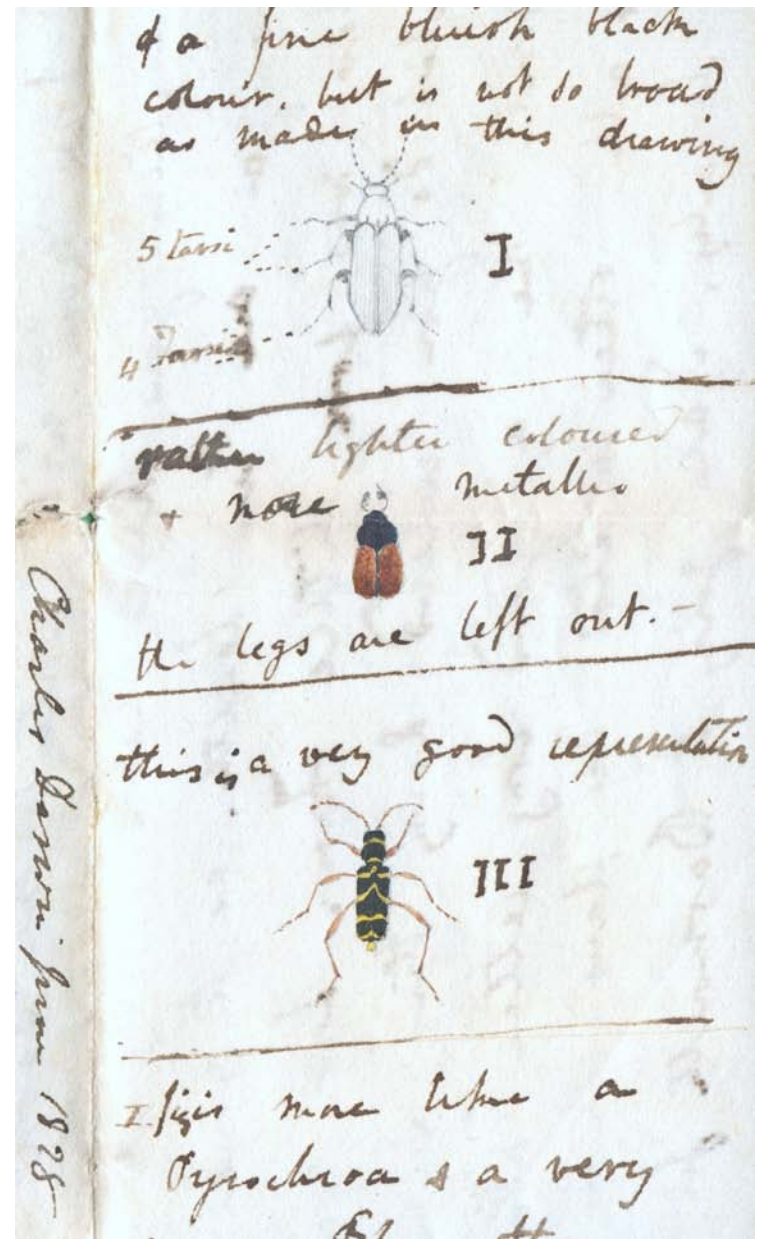 of a fine bluish black
colour. but is not so broad
as made in this drawing
5 tarsi
I
4 Tarsi
rather lighter coloured
+ more metallic
II
the legs are left out. –
this is a very good representation
III
I fig is more like a
Pyrochroa & a very
Charles Darwin June 1828